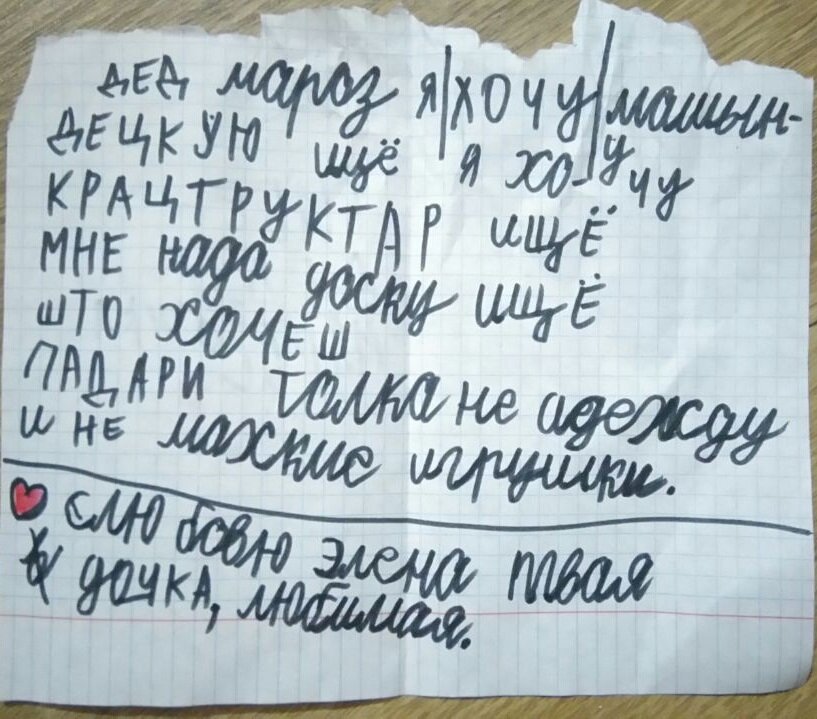 ДЕД мароз я хочу машын-
ДЕЦКУЮ ищё я хо- у чу
КРАЦТРУКТАР ищЁ
МНЕ нада доску ищЁ
што хочЕш
ПАДАРИ толка не адежду
и не мажкие игрушки.
слюбовю элена твая
дочка, любимая.